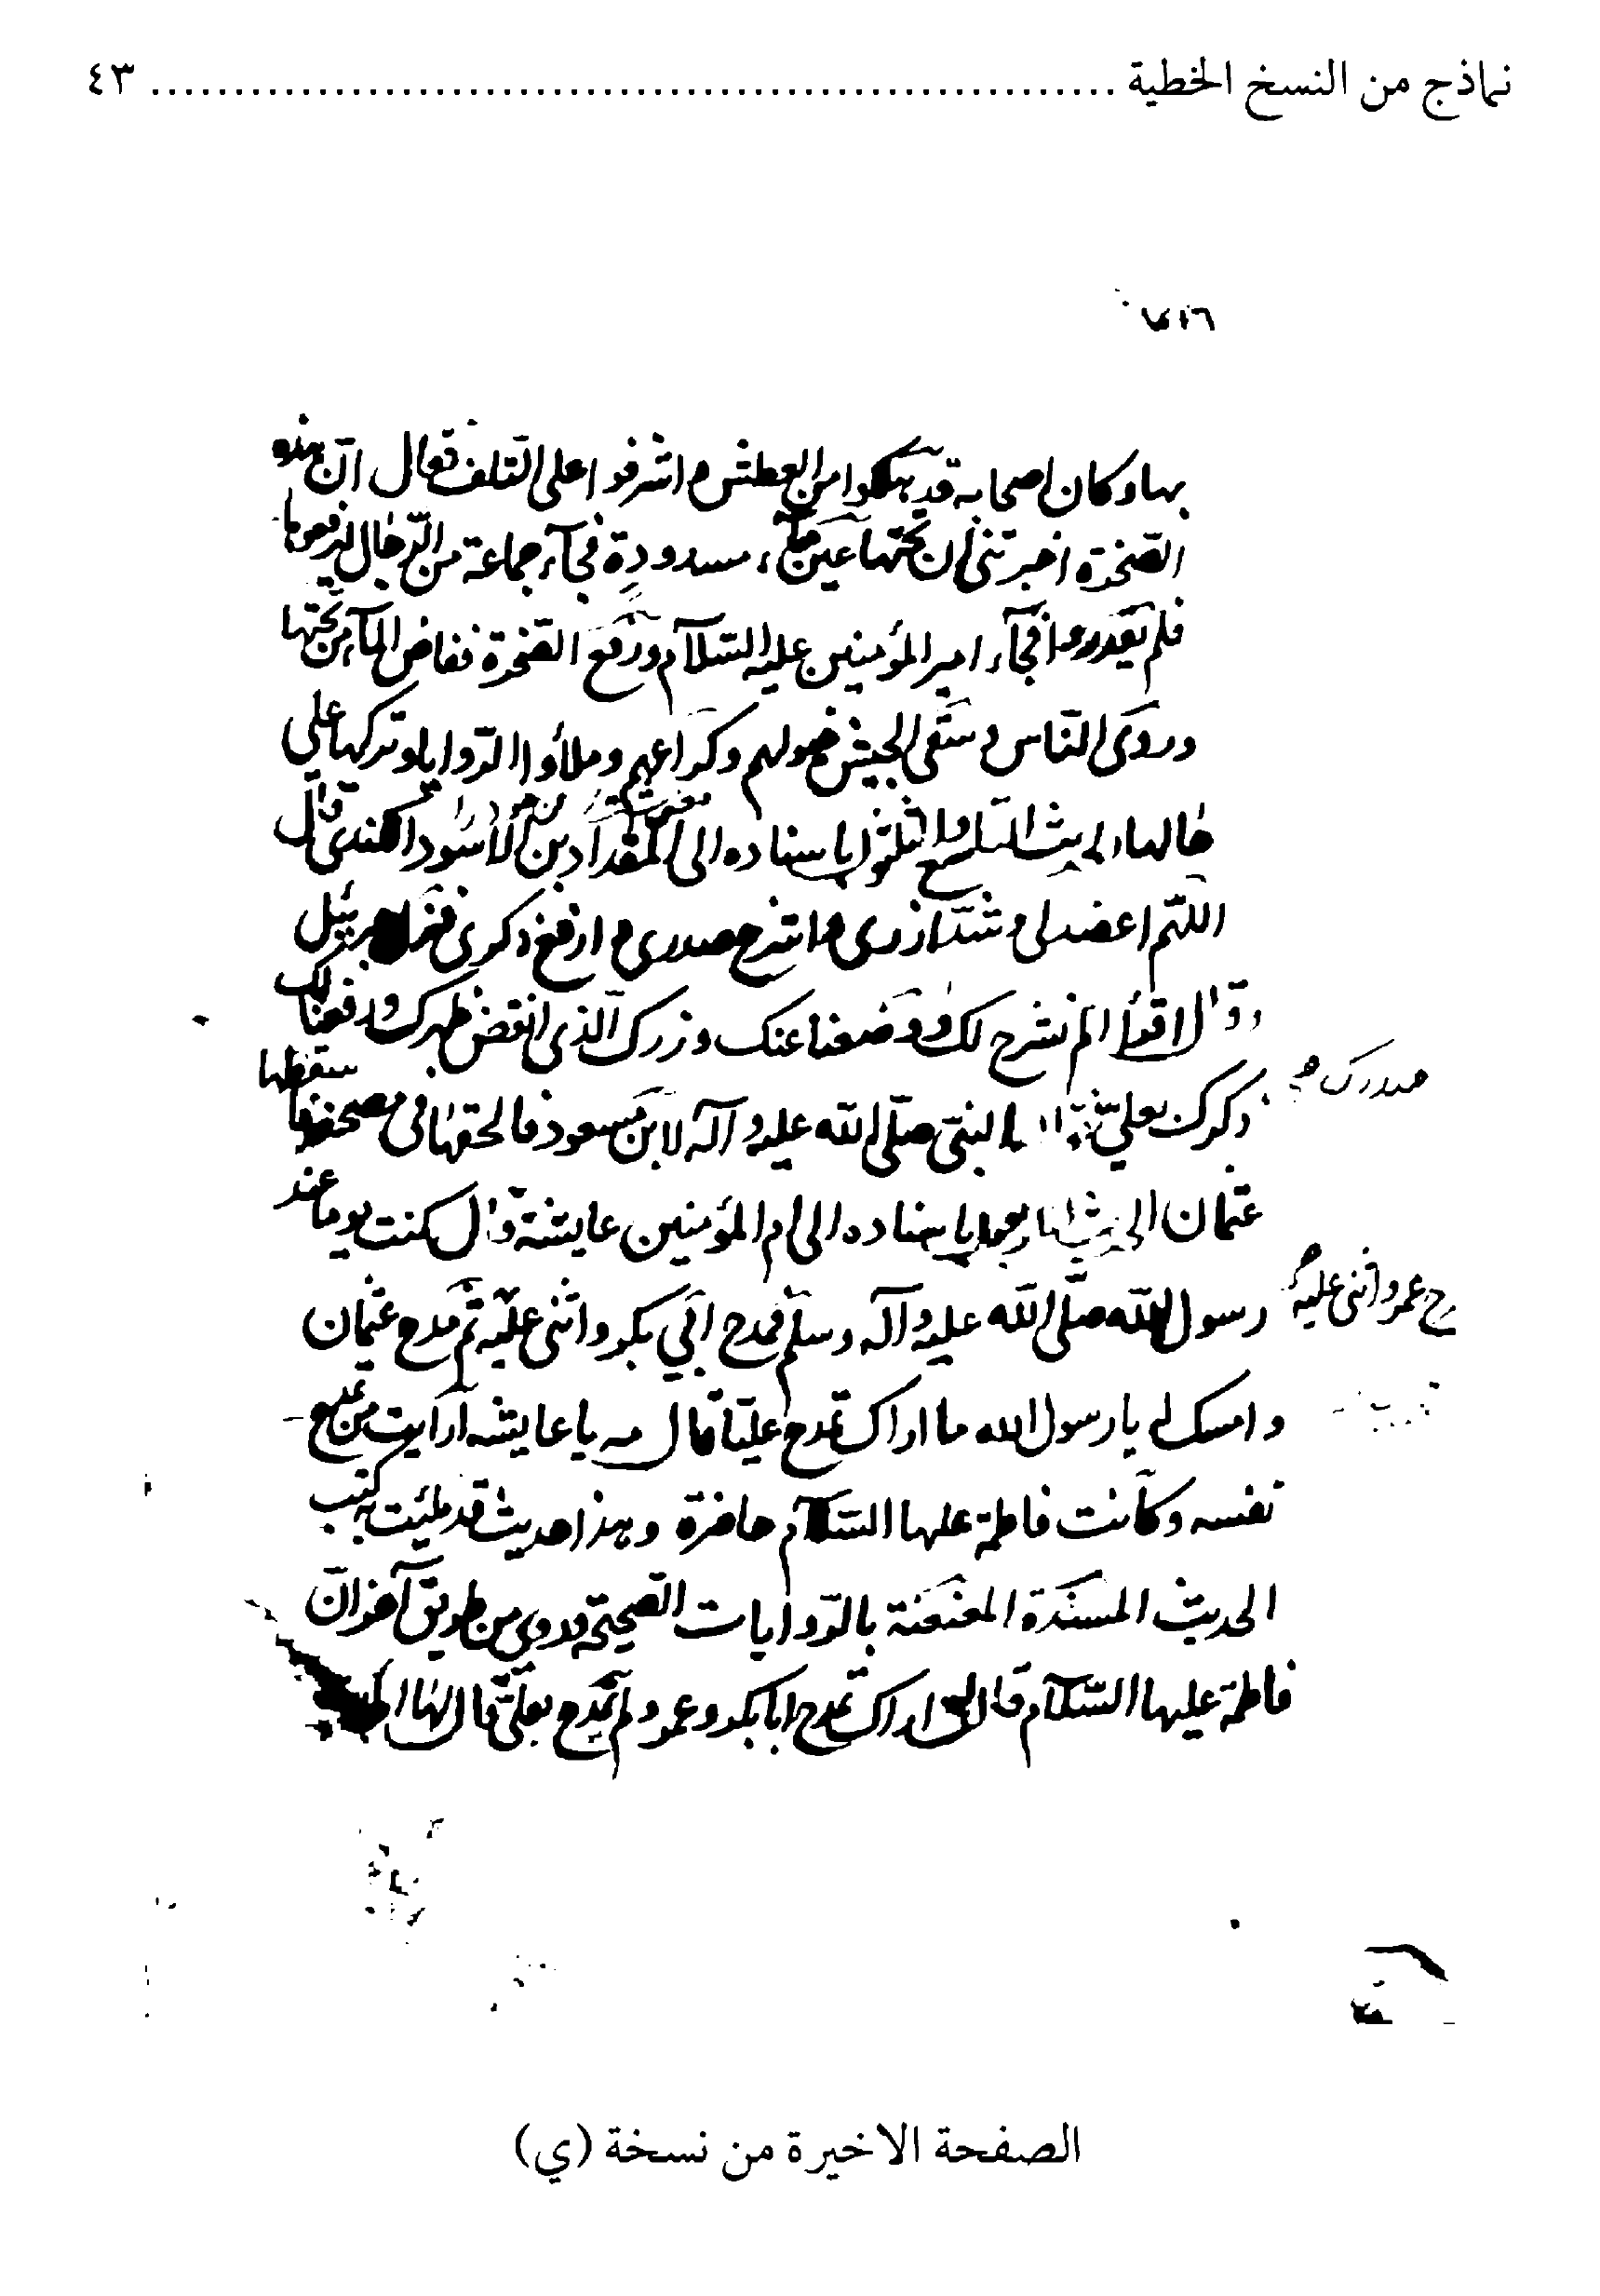 نماذج من النسخ الخطية ........................................................ ٤٣
بها وكان اصحابه قد هلكوا من العطش و اشرفوا على التلف فقال ان هذه
الصّخرة اخبرتني ان تحتها عين ماء مسدودة فجآء جماعة من الرّجال ليرفعوها
فلم يقدروا فجآء امير المؤمنين عليه السّلام ورفع الصّخرة ففاض المآء من تحتها
وروى النّاس و سقى الجيش خيولهم وكراعهم وملأوا الرّوايا وتركها على
حالها الحديث باسناده الى المقداد بن الأسود الكندي قال
اللّهم اعضدلي و شدّ ازري و اشرح صدري و ارفع ذكري فنزل جبرئيل
وقال اقرأ الم نشرح لك ووضعنا عنك وزرك الّذي انقض ظهرك ورفعنا لك
صدرك
ذكرك بعليّ النبيّ صلّى الله عليه وآله لابن مسعود فالحقها في مصحفه فاسقطها
عثمان الحديث باسناده الى ام المؤمنين عايشة قال كنت يوما عند
رسول الله صلّى الله عليه وآله وسلّم فمدح ابي بكر واثنى عليه ثم مدح عثمان
ح عمر واثنى عليه
وامسك يا رسول الله ما اراك تمدح عليّا قال مه يا عايشه أرايت من يمدح
نفسه وكانت فاطمة عليها السّلام حاضرة وهذا حديث قد ملئت به كتب
الحديث المسندة المعنعنة بالرّوايات الصّحيحة وروى من طريق آخر انّ
فاطمة عليها السّلام قالت اراك تمدح ابا بكر وعمر ولم تمدح بعليّ قال لها
الصفحة الاخيرة من نسخة (ي)